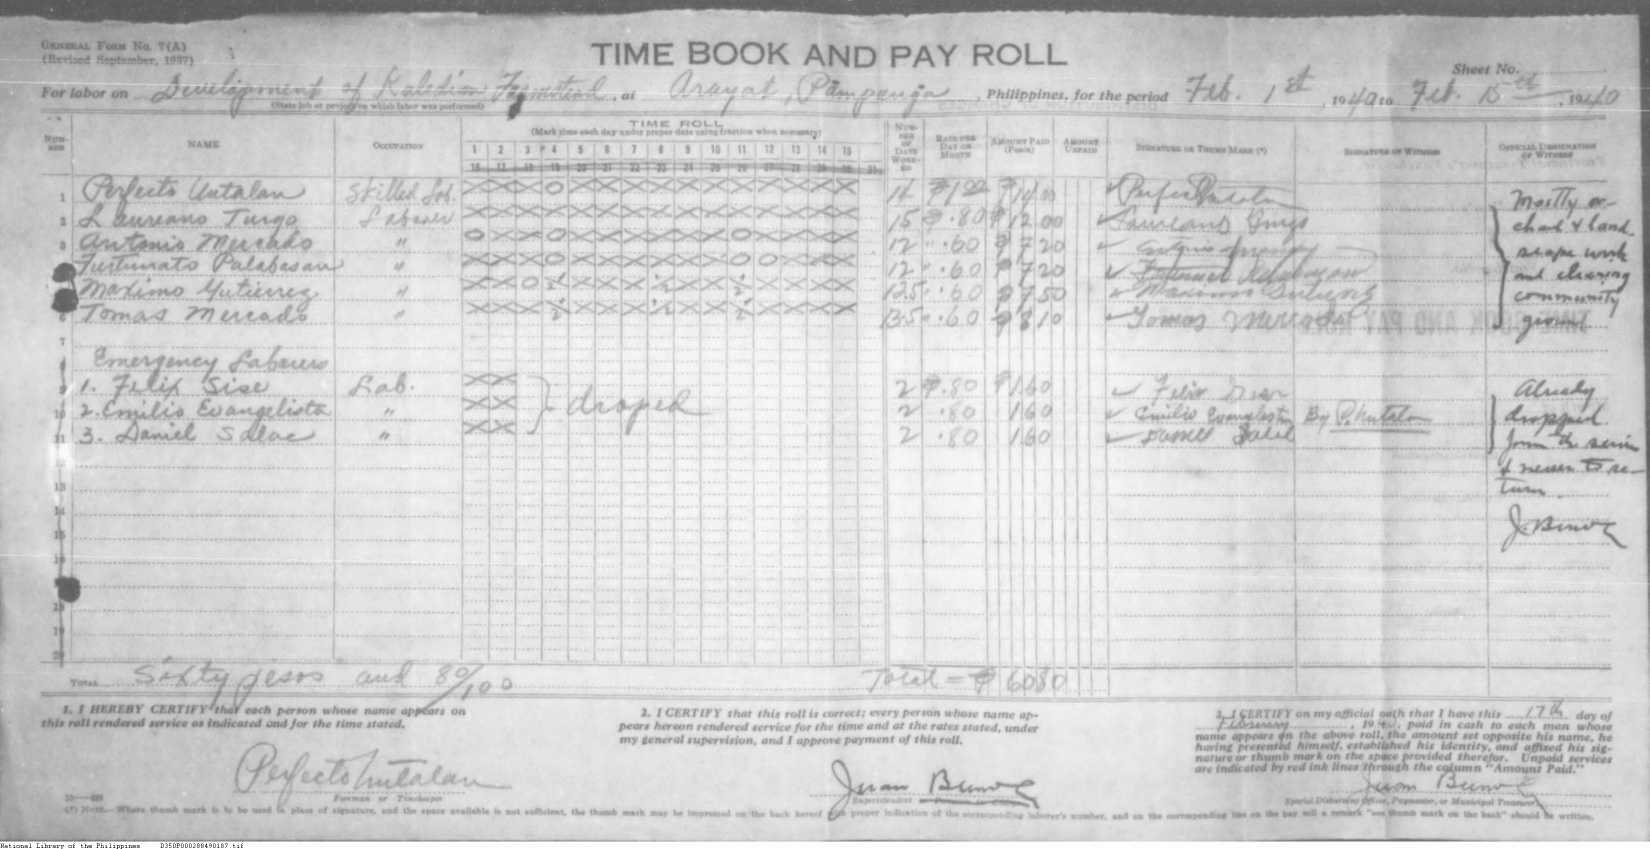 GENERAL FORM NO. 7(A)
(Revised September, 1937)
TIME BOOK AND PAY ROLL
Sheet No.
For labor on Development of , at Arayat, Pampanga , Philippines, for the period Feb. 1st , 1940 to Feb. 15th , 1940
(State job or project on which labor was performed)
NUMBER
NAME
OCCUPATION
TIME ROLL
(Mark time each day under proper date using fraction when necessary)
1 2 3 4 5 6 7 8 9 10 11 12 13 14 15
16 17 18 19 20 21 22 23 24 25 26 27 28 29 30 31
NUMBER OF DAYS WORKED
RATE PER DAY OR MONTH
AMOUNT PAID (Pesos)
AMOUNT UNPAID
SIGNATURE OR THUMB MARK (*)
SIGNATURE OF WITNESS
OFFICIAL DESIGNATION OF WITNESS
1 Perfecto Mutalan Skilled Lab. X X X O X X X X X X X X X X X 14 ₱1.00 ₱14.00
2 Laureano Tungo Laborer X X X X X X X X X X X X X X X 15 ₱.80 ₱12.00
3 Antonio Mercado " 12 .60 ₱7.20
Furtunato Palabasan " 12 .60 ₱7.20
Maximo Gutierrez " 12.5 .60 ₱7.50
6 Tomas Mercado " 13.5 .60 ₱8.10 Tomas Mercado
Mostly or-
chard & land
scape work
and clearing
community
ground
7
Emergency Laborers
9 1. Felix Sise Lab. X X 2 ₱.80 ₱1.60
10 2. Emilio Evangelista " X X } droped 2 .80 1.60 Emilio Evangelista By P. Mutalan
11 3. Daniel Salac " X X 2 .80 1.60
Already
dropped
from the
& never to re-
turn.
J. Buno
12
13
14
15
16
18
19
20
TOTAL Sixty pesos and 80/100 Total = ₱ 60.80
1. I HEREBY CERTIFY that each person whose name appears on
this roll rendered service as indicated and for the time stated.
Perfecto Mutalan
Foreman or Timekeeper
2. I CERTIFY that this roll is correct; every person whose name ap-
pears hereon rendered service for the time and at the rates stated, under
my general supervision, and I approve payment of this roll.
Juan Buno
Superintendent
3. I CERTIFY on my official oath that I have this 17th day of
February , 1940, paid in cash to each man whose
name appears on the above roll, the amount set opposite his name, he
having presented himself, established his identity, and affixed his sig-
nature or thumb mark on the space provided therefor. Unpaid services
are indicated by red ink lines through the column "Amount Paid."
Juan Buno
Special Disbursing Officer, Paymaster, or Municipal Treasurer
(*) NOTE.—Where thumb mark is to be used in place of signature, and the space available is not sufficient, the thumb mark may be impressed on the back hereof with proper indication of the corresponding laborer's number, and on the corresponding line on the pay roll a remark "see thumb mark on the back" should be written.
National Library of the Philippines D350P000288490187.tif